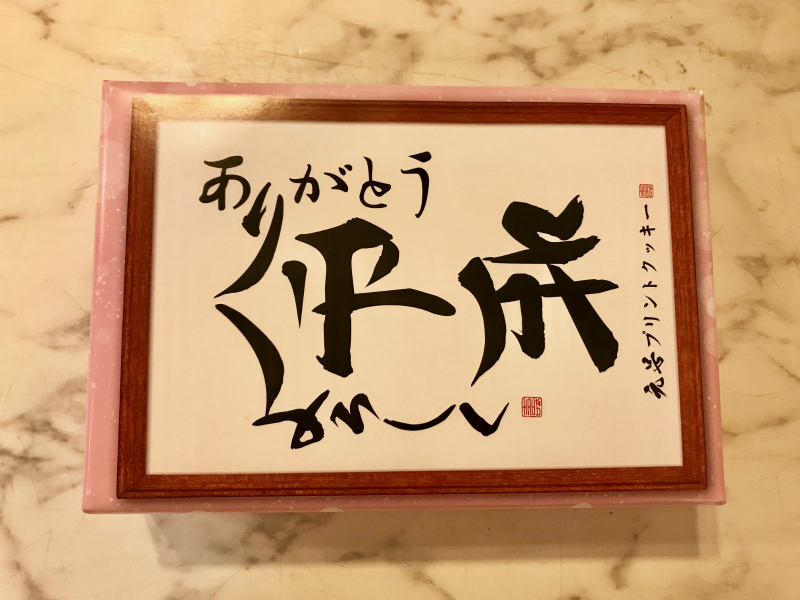 ありがとう
平成
よろしく
元号プリントクッキー